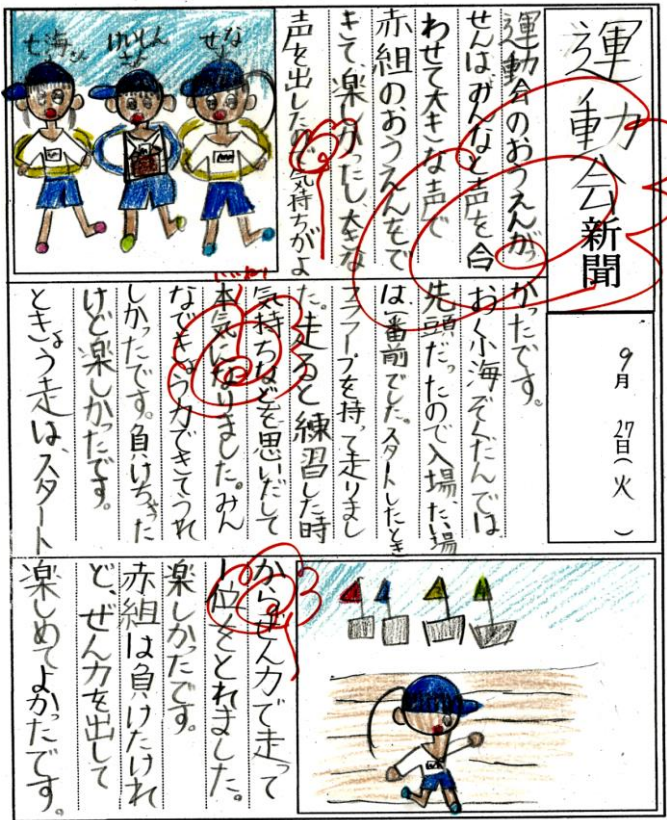 運動会新聞
9月27日(火)
運動会のおうえんがっ
せんはみんなと声を合
わせて大きな声で
赤組のおうえんをで
きて、楽しかったし、大きな
声を出したので気持ちがよ
せな
けいしん
七海さん
かったです。
おく小海ぞくだんでは
先頭だったので入場、たい場
は一番前でした。スタートしたとき
フラフープを持って走りまし
た。走ると練習した時
気持ちなどを思いだして
本気になりました。みん
なできょう力できてうれ
しかったです。負けちゃった
けど楽しかったです。
ときょう走は、スタート
からぜん力で走って
1位をとれました。
楽しかったです。
赤組は負けたけれ
ど、ぜん力を出して
楽しめてよかったです。